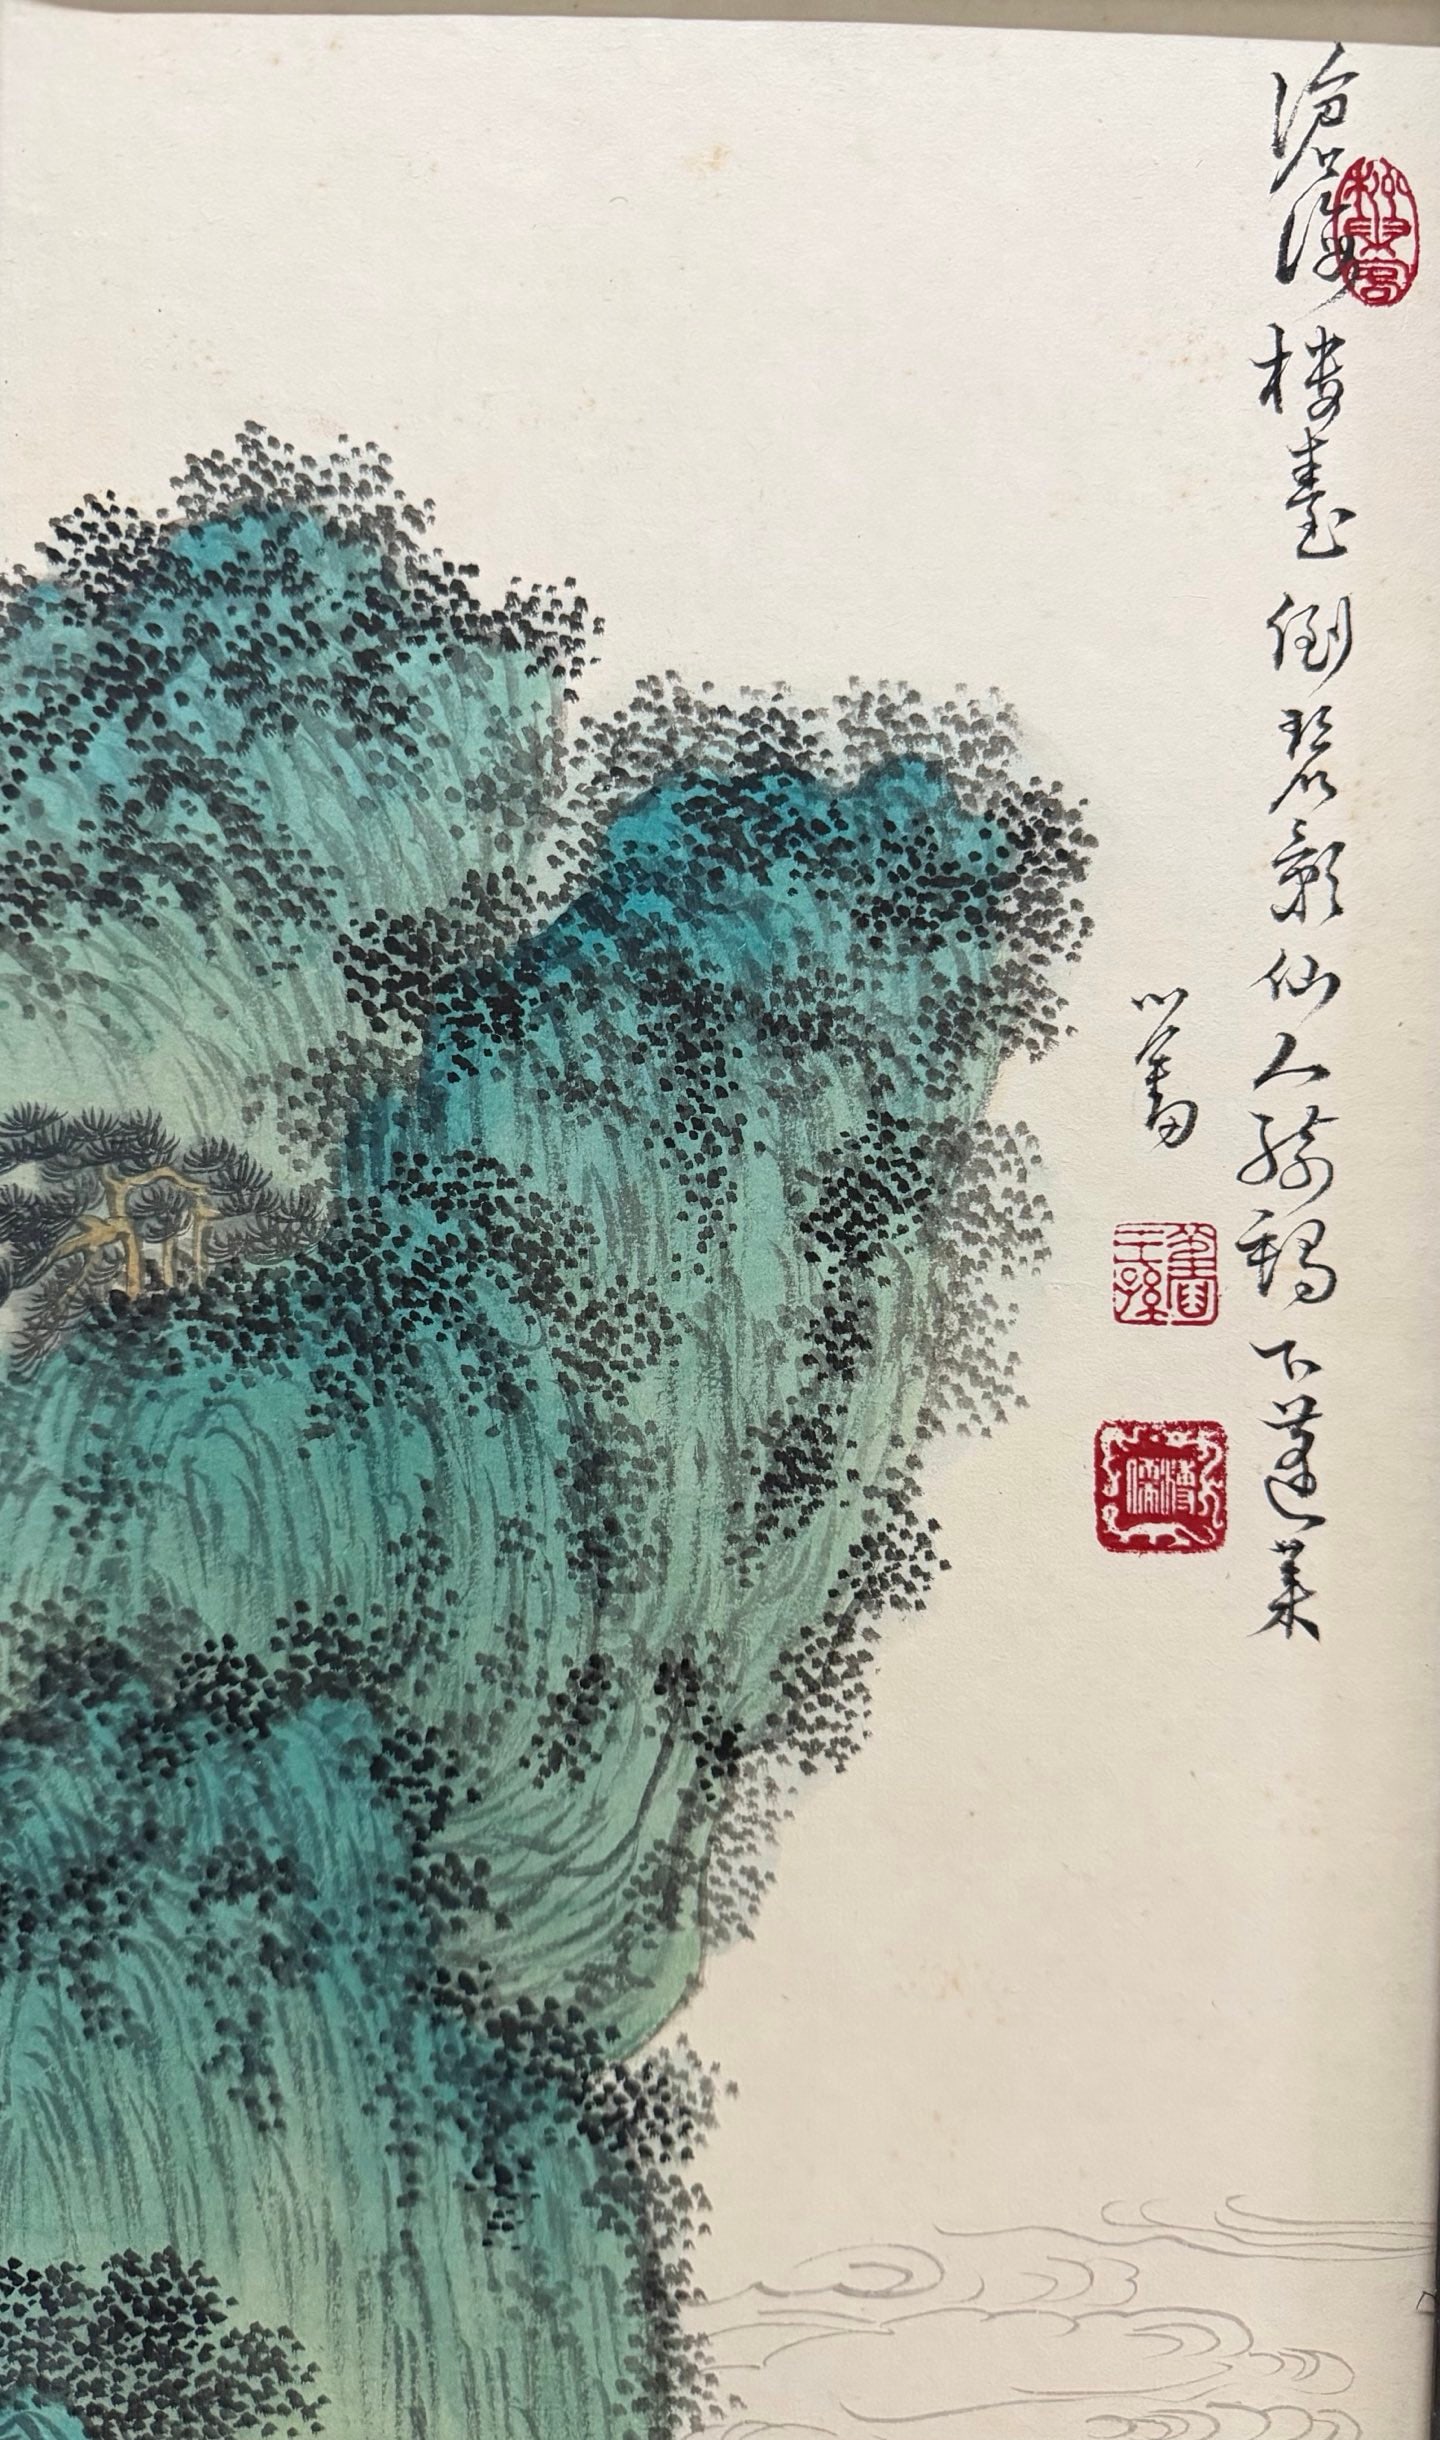 松巢客
滄海樓臺倒碧影仙人騎鶴下蓬萊
心畬
舊王孫
溥儒